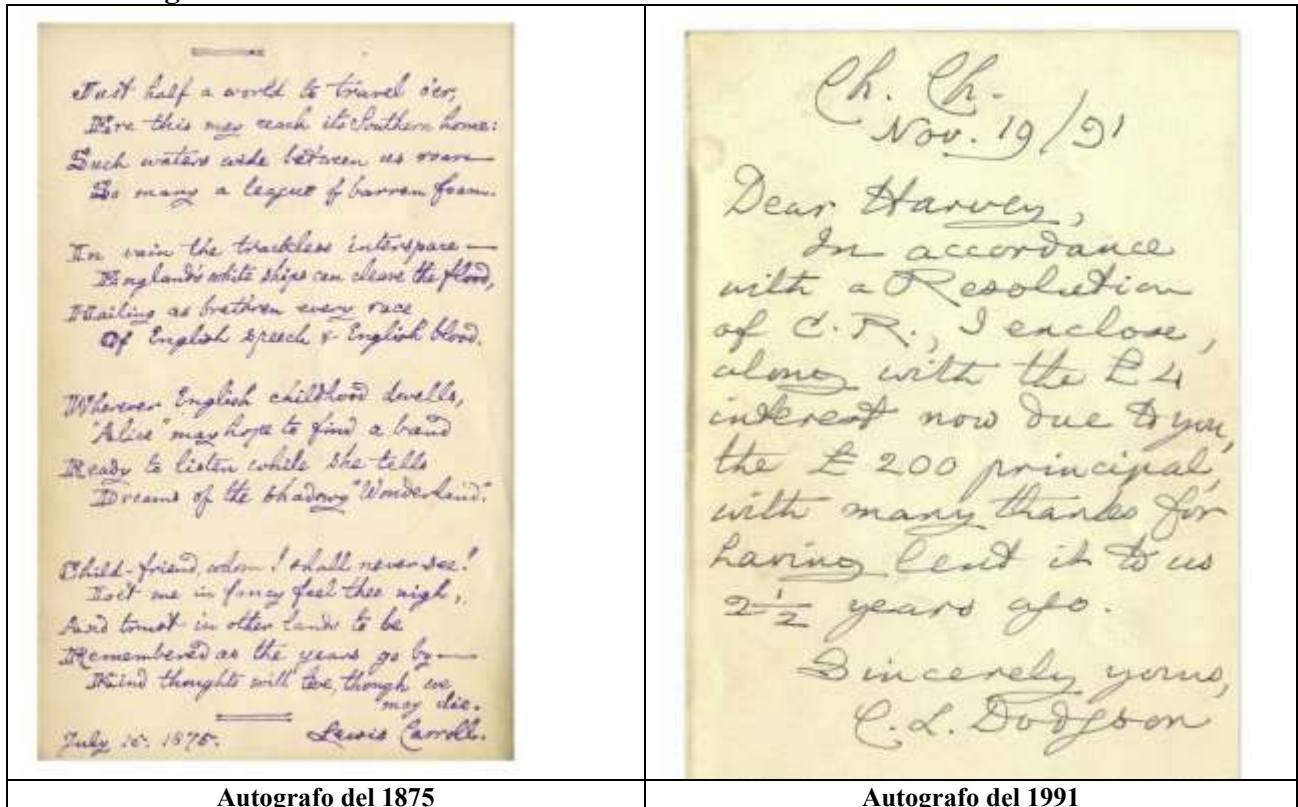 Just half a world to travel o'er,
Ere this may reach its Southern home:
Such waters wide between us roar—
So many a league of barren foam.
In vain the trackless interspace—
England's white ships can cleave the flood,
Hailing as brethren every race
Of English speech & English blood.
Wherever English childhood dwells,
"Alice" may hope to find a band
Ready to listen while she tells
Dreams of the shadowy "Wonderland."
Child-friend, whom I shall never see!
Let me in fancy feel thee nigh,
And trust in other lands to be
Remembered as the years go by—
Kind thoughts will live, though we
may die.
July 1875. Lewis Carroll.
Autografo del 1875
Ch. Ch.
Nov. 19/91
Dear Harvey,
In accordance
with a Resolution
of C.R., I enclose,
along with the £4
interest now due to you,
the £200 principal,
with many thanks for
having lent it to us
2½ years ago.
Sincerely yours,
C. L. Dodgson
Autografo del 1991